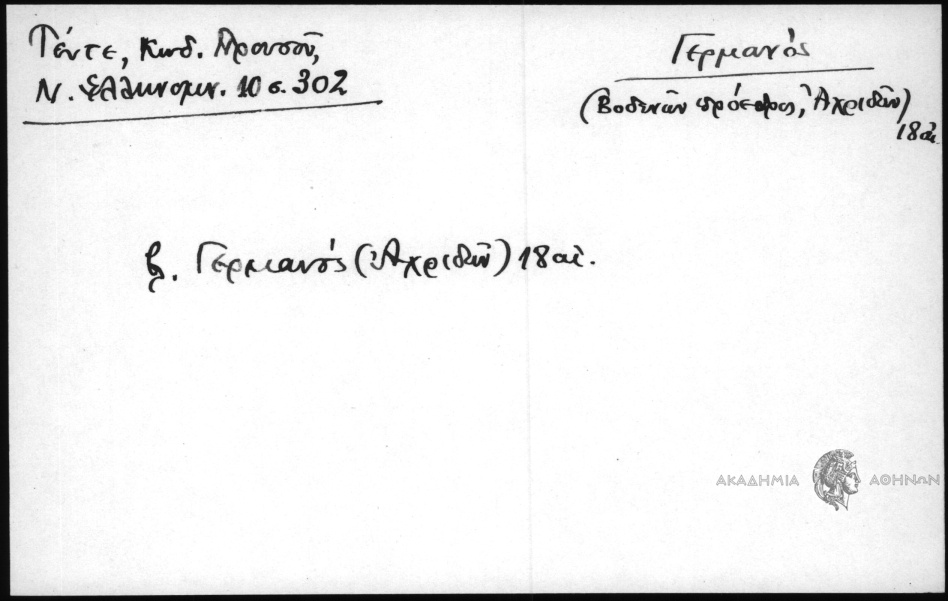 Τέντε, Κωδ. Προυσοῦ,
Ν. Ἑλληνομν. 10 σ. 302
Γερμανός
(Βοδενῶν πρόεδρος, Ἀχριδῶν)
18 αἰ.
β. Γερμανός (Ἀχριδῶν) 18 αἰ.
ΑΚΑΔΗΜΙΑ ΑΘΗΝΩΝ